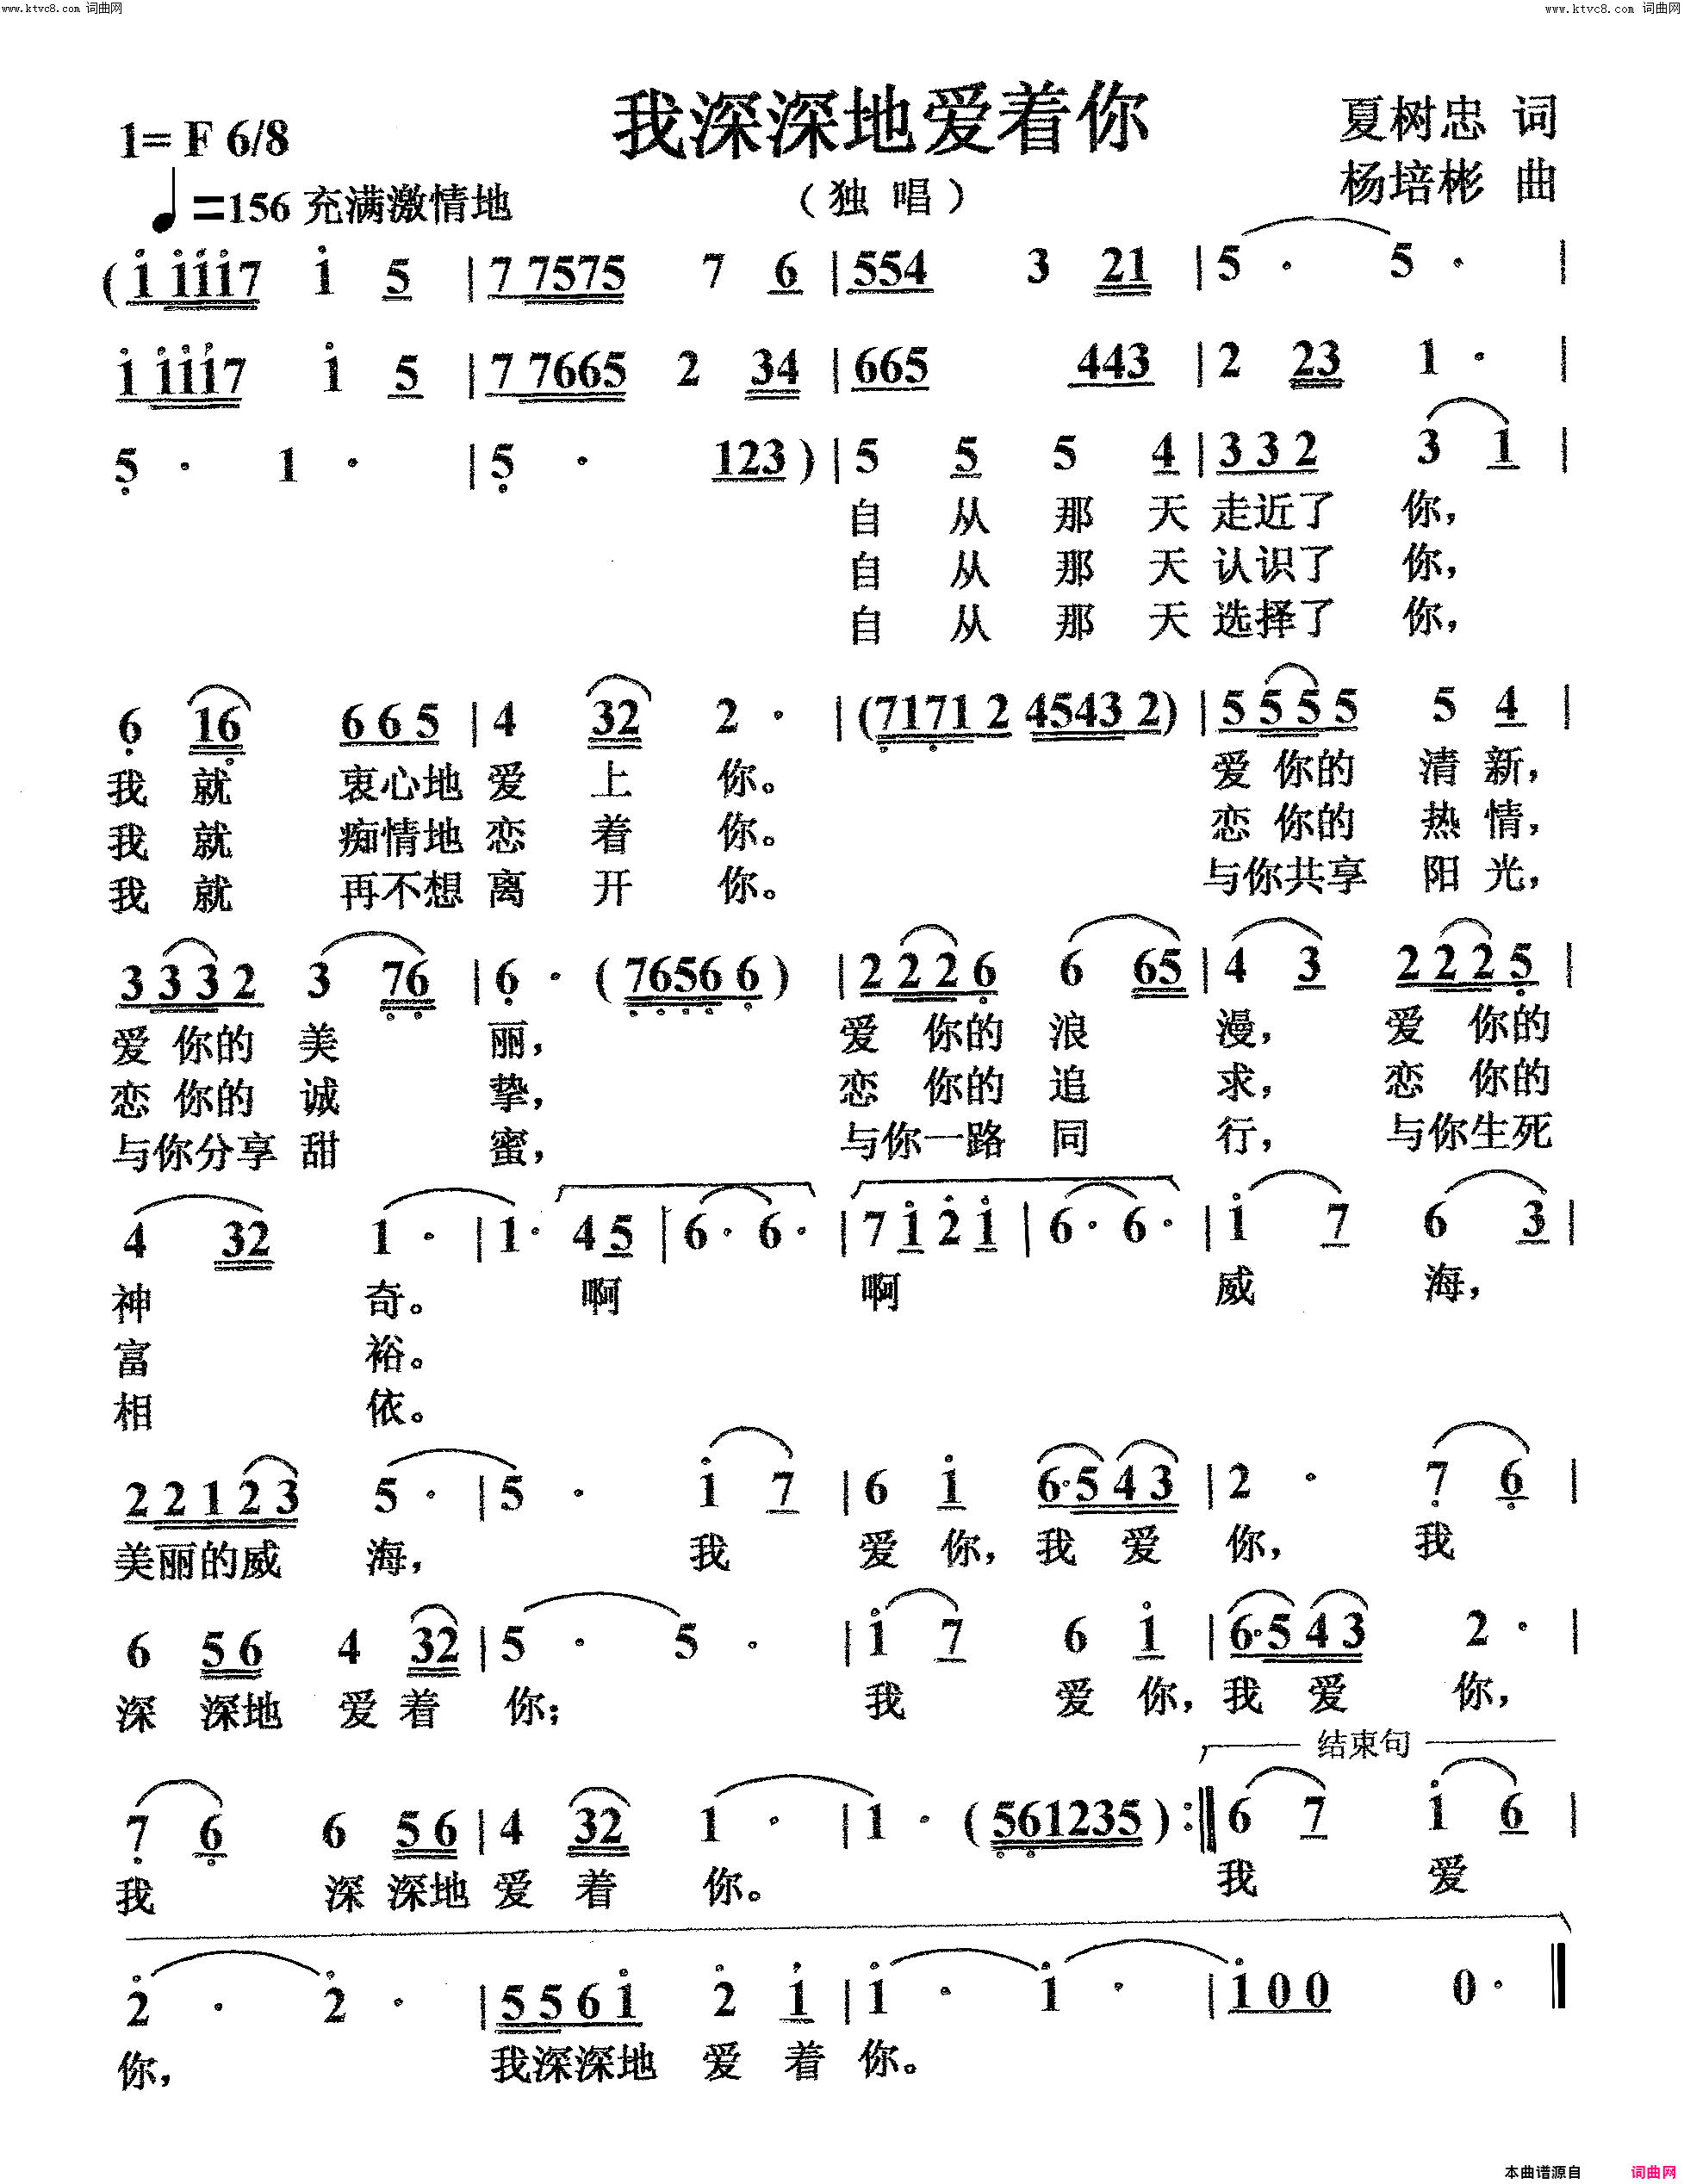 www.ktvc8.com 词曲网
www.ktvc8.com 词曲网
我深深地爱着你
夏树忠 词
1= F 6/8
杨培彬 曲
♩=156 充满激情地
（独 唱）
( i iii7 i 5 | 7 7575 7 6 | 554 3 21 | 5 · 5 · |
i iii7 i 5 | 7 7665 2 34 | 665 443 | 2 23 1 · |
5 · 1 · | 5 · 123 ) | 5 5 5 4 | 3 3 2 3 1 |
自 从 那 天 走近了 你，
自 从 那 天 认识了 你，
自 从 那 天 选择了 你，
6 16 6 6 5 | 4 32 2 · | (7171 2 4543 2) | 5 5 5 5 5 4 |
我 就 衷心地 爱 上 你。 爱 你的 清 新，
我 就 痴情地 恋 着 你。 恋 你的 热 情，
我 就 再不想 离 开 你。 与你共享 阳 光，
3 3 3 2 3 76 | 6 · ( 7656 6 ) | 2 2 2 6 6 65 | 4 3 2 2 2 5 |
爱 你的 美 丽， 爱 你的 浪 漫， 爱 你的
恋 你的 诚 挚， 恋 你的 追 求， 恋 你的
与你分享 甜 蜜， 与你一路 同 行， 与你生死
4 32 1 · | 1 · 4 5 | 6 · 6 · | 7 i 2 i | 6 · 6 · | i 7 6 3 |
神 奇。 啊 啊 威 海，
富 裕。
相 依。
2 2 1 2 3 5 · | 5 · i 7 | 6 i 6·5 4 3 | 2 · 7 6 |
美丽的威 海， 我 爱 你，我 爱 你， 我
6 5 6 4 32 | 5 · 5 · | i 7 6 i | 6·5 4 3 2 · |
深 深地 爱 着 你； 我 爱 你，我 爱 你，
结束句
7 6 6 5 6 | 4 32 1 · | 1 · ( 561235 ) :‖ 6 7 i 6 |
我 深 深地 爱 着 你。 我 爱
2 · 2 · | 5 5 6 i 2 i | i · i · | i 0 0 0 · ‖
你， 我深深地 爱 着 你。
本曲谱源自 词曲网